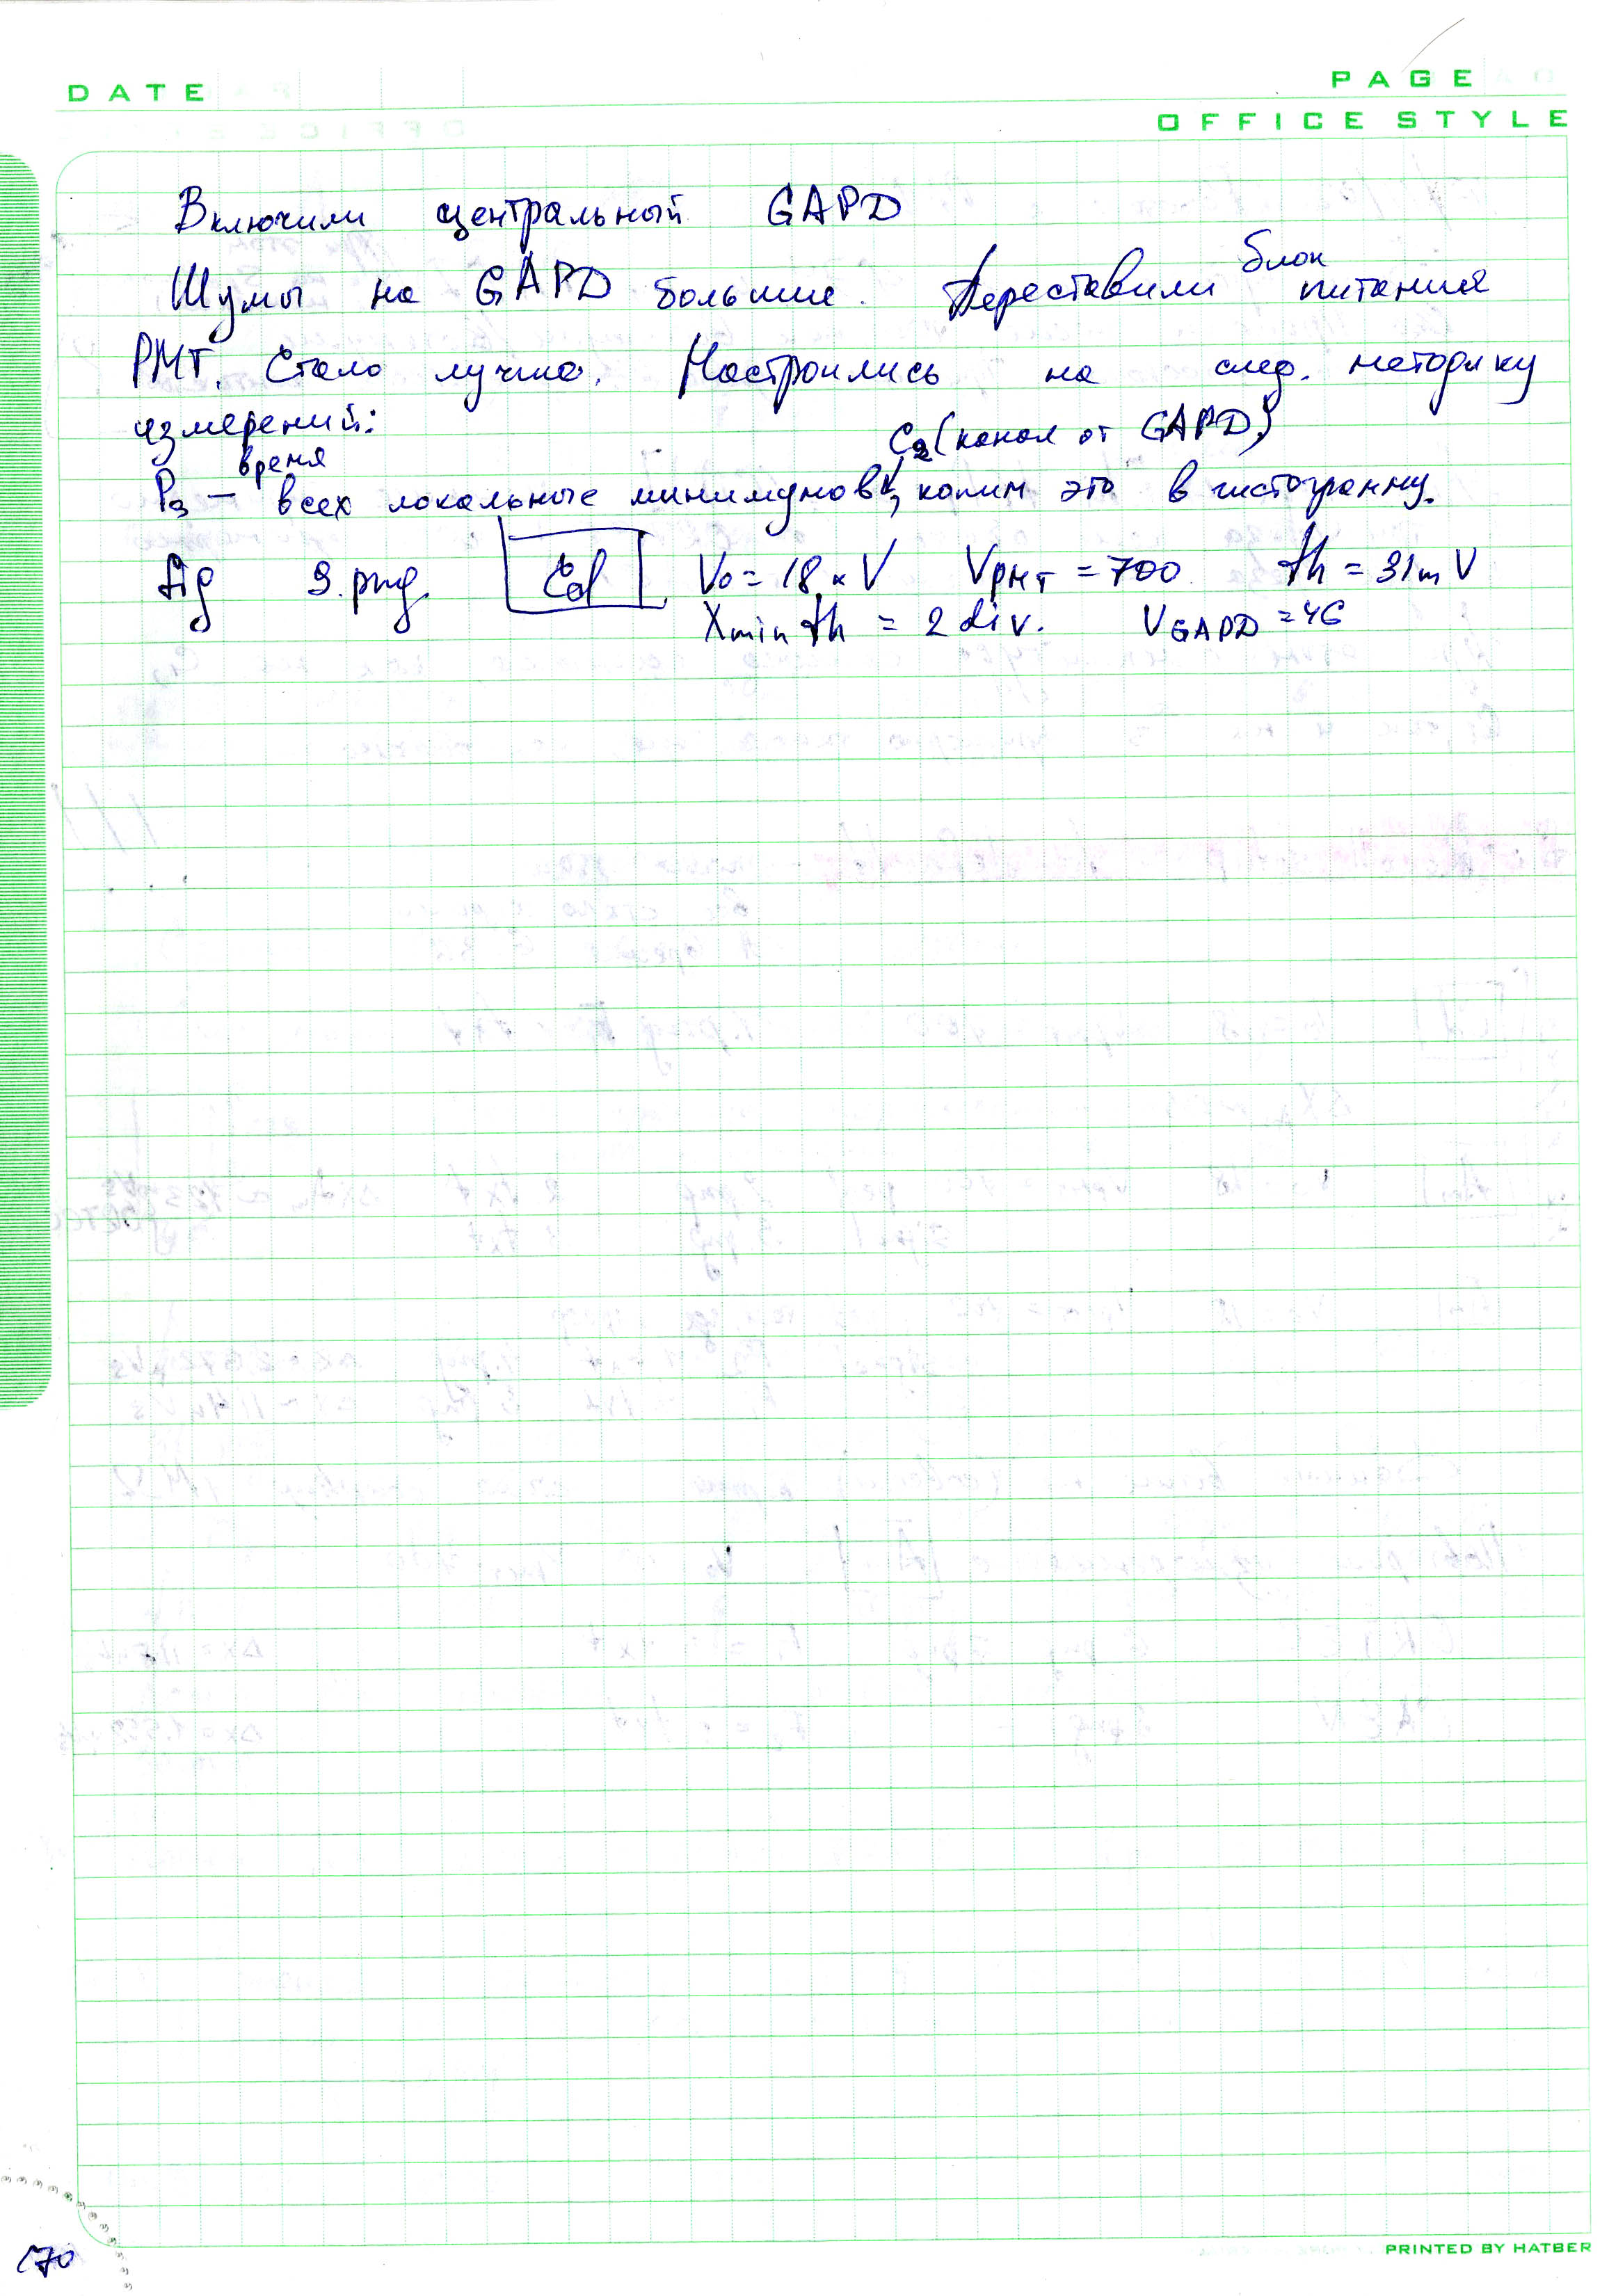 DATE
PAGE
OFFICE STYLE
Включили центральный GAPD
Шумы на GAPD большие. Переставили блок питания
PMT. Стало лучше. Настроились на след. методику
измерений:
C2 (канал от GAPD)
время
P3 — всех локальные минимумов, копим это в гистограмму.
fig 9.png. Cd V0 = 18 к V VPMT = 700 th = 31 mV
Xmin th = 2 div. VGAPD = 46
170
PRINTED BY HATBER